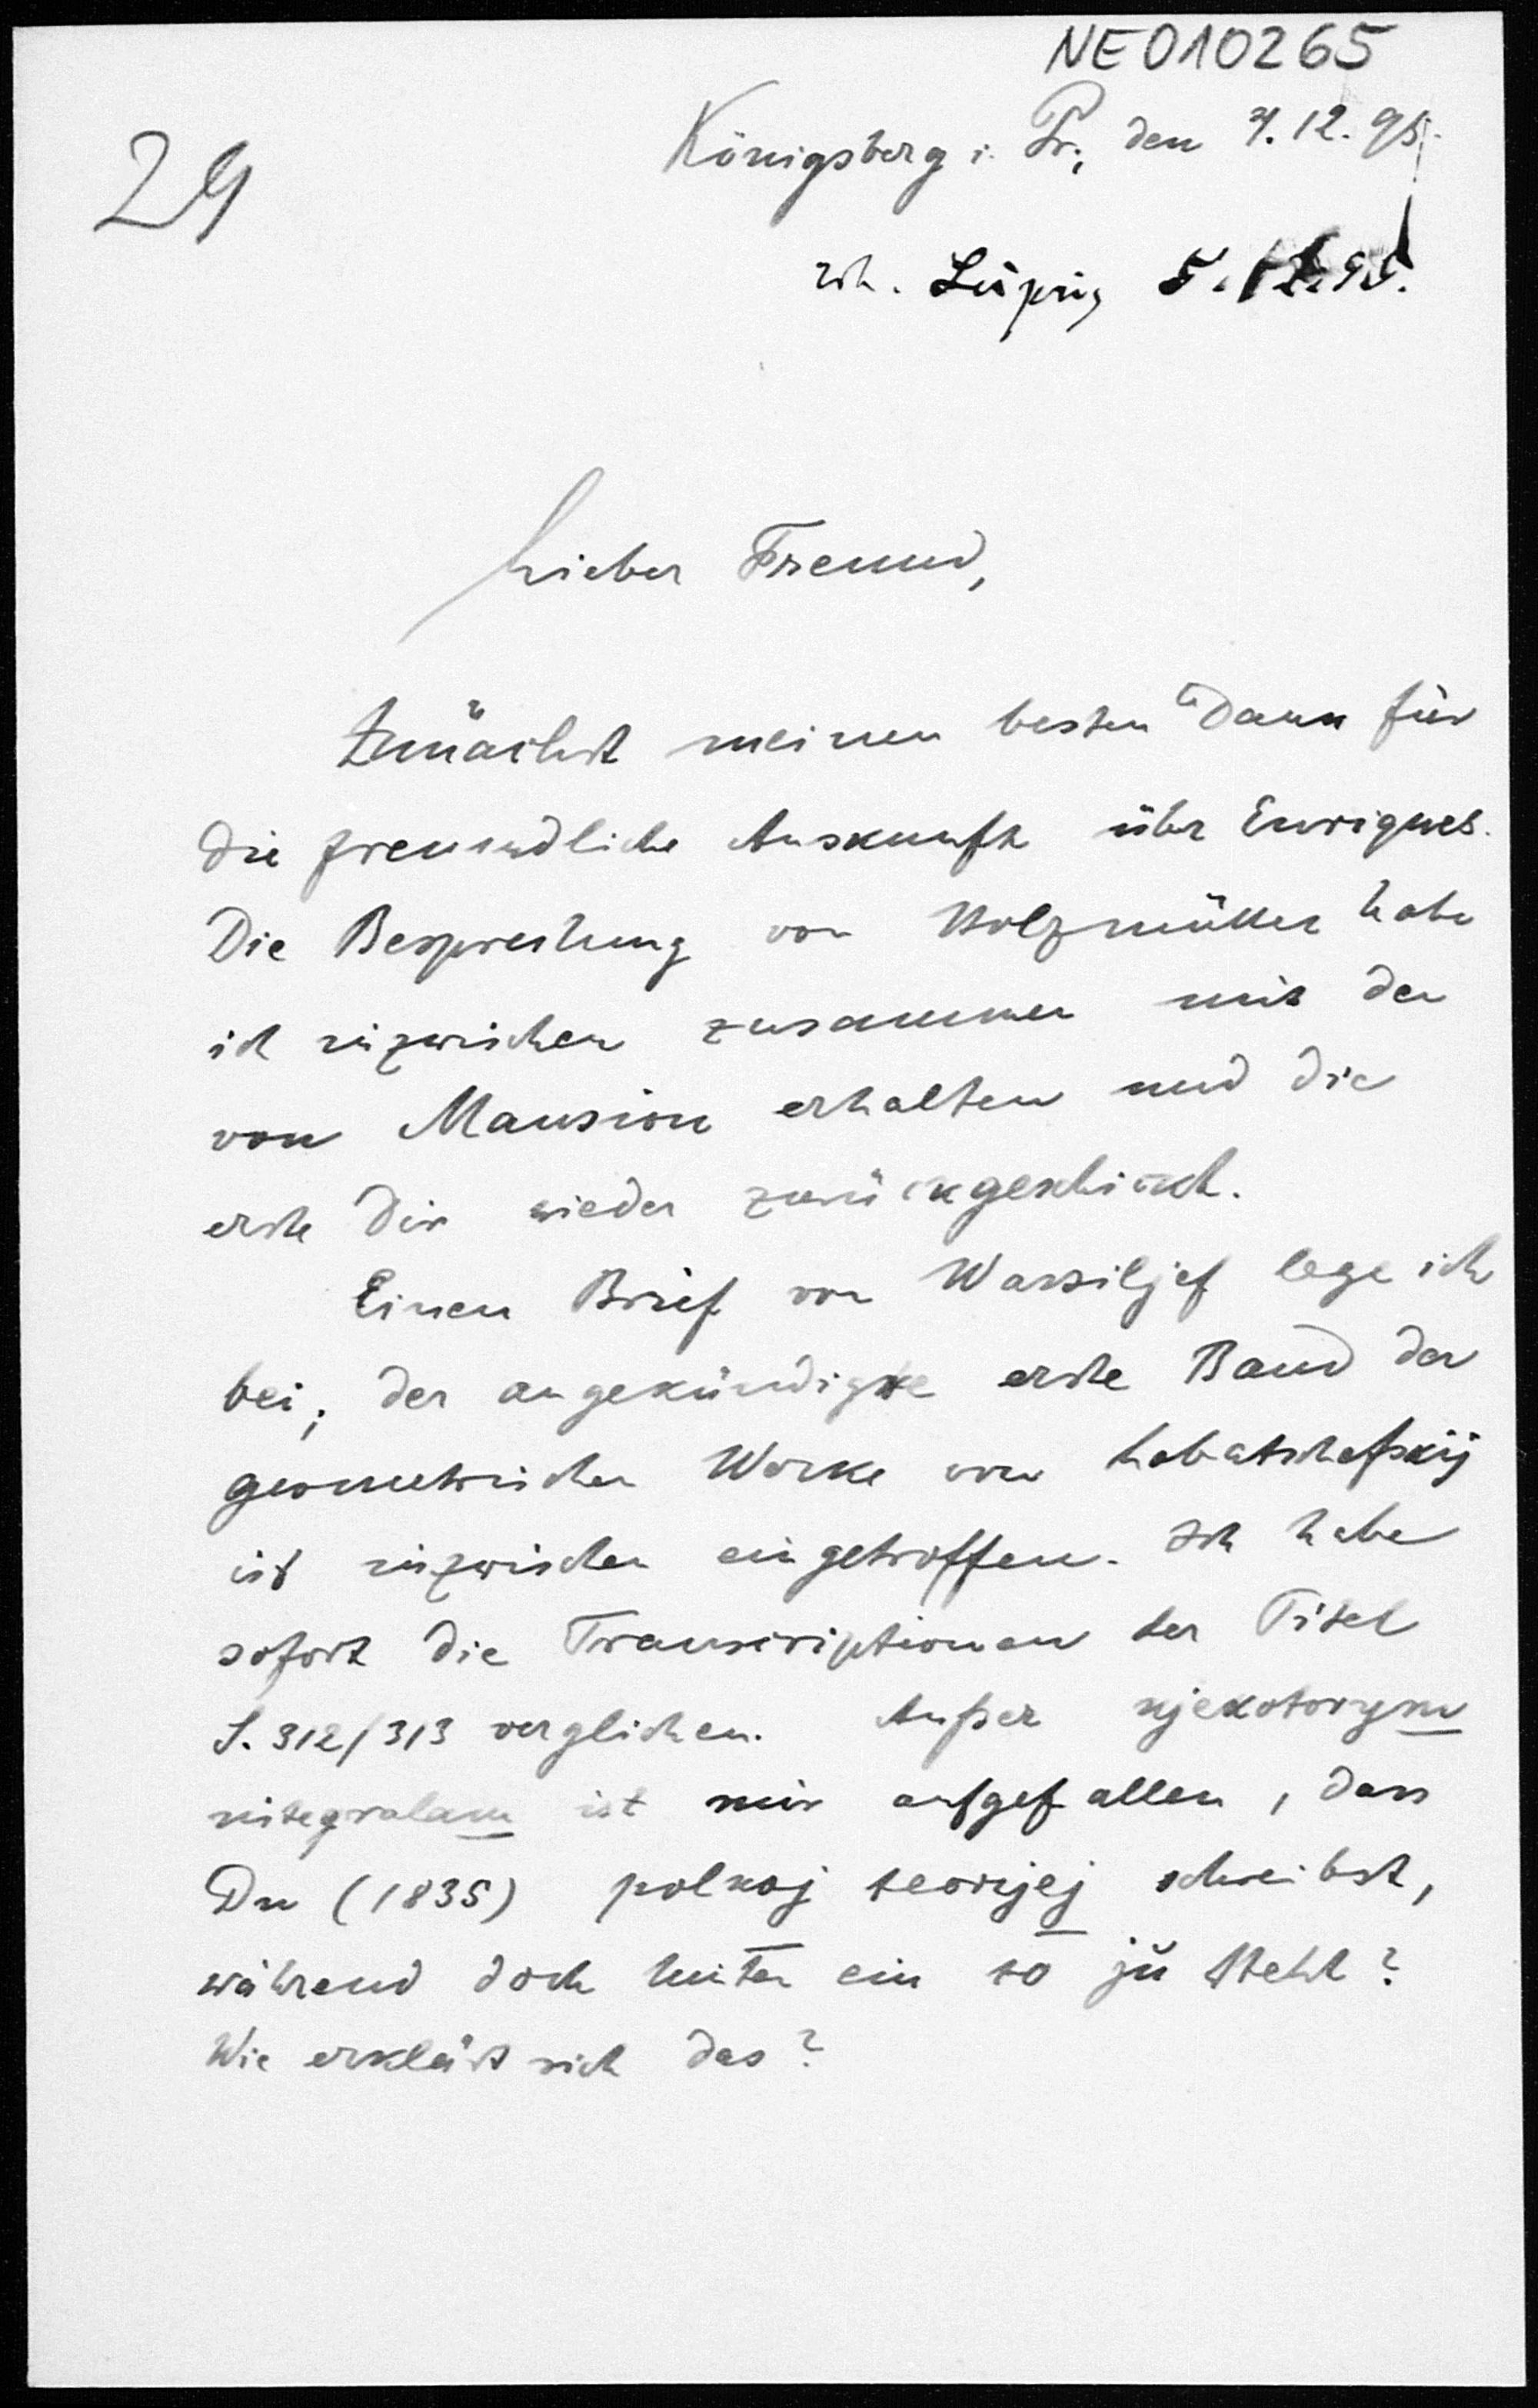 NE010265
29
Königsberg i. Pr., den 4.12.95.
Leipzig 5.12.95.
Lieber Freund,
Zunächst meinen besten Dank für
die freundliche Auskunft über Enriques.
Die Besprechung von Holzmüller habe
ich inzwischen zusammen mit der
von Mansion erhalten und die
erste Dir wieder zurückgeschickt.
Einen Brief von Wassiljef lege ich
bei; der angekündigte erste Band der
geometrischen Werke von Lobatschefskij
ist inzwischen eingetroffen. Ich habe
sofort die Transcriptionen der Titel
S. 312/313 verglichen. Außer njekotorym
integralam ist mir aufgefallen, dass
Du (1835) polnoj teorijej schreibst,
während doch hinten ein so jŭ steht?
Wie erklärt sich das?